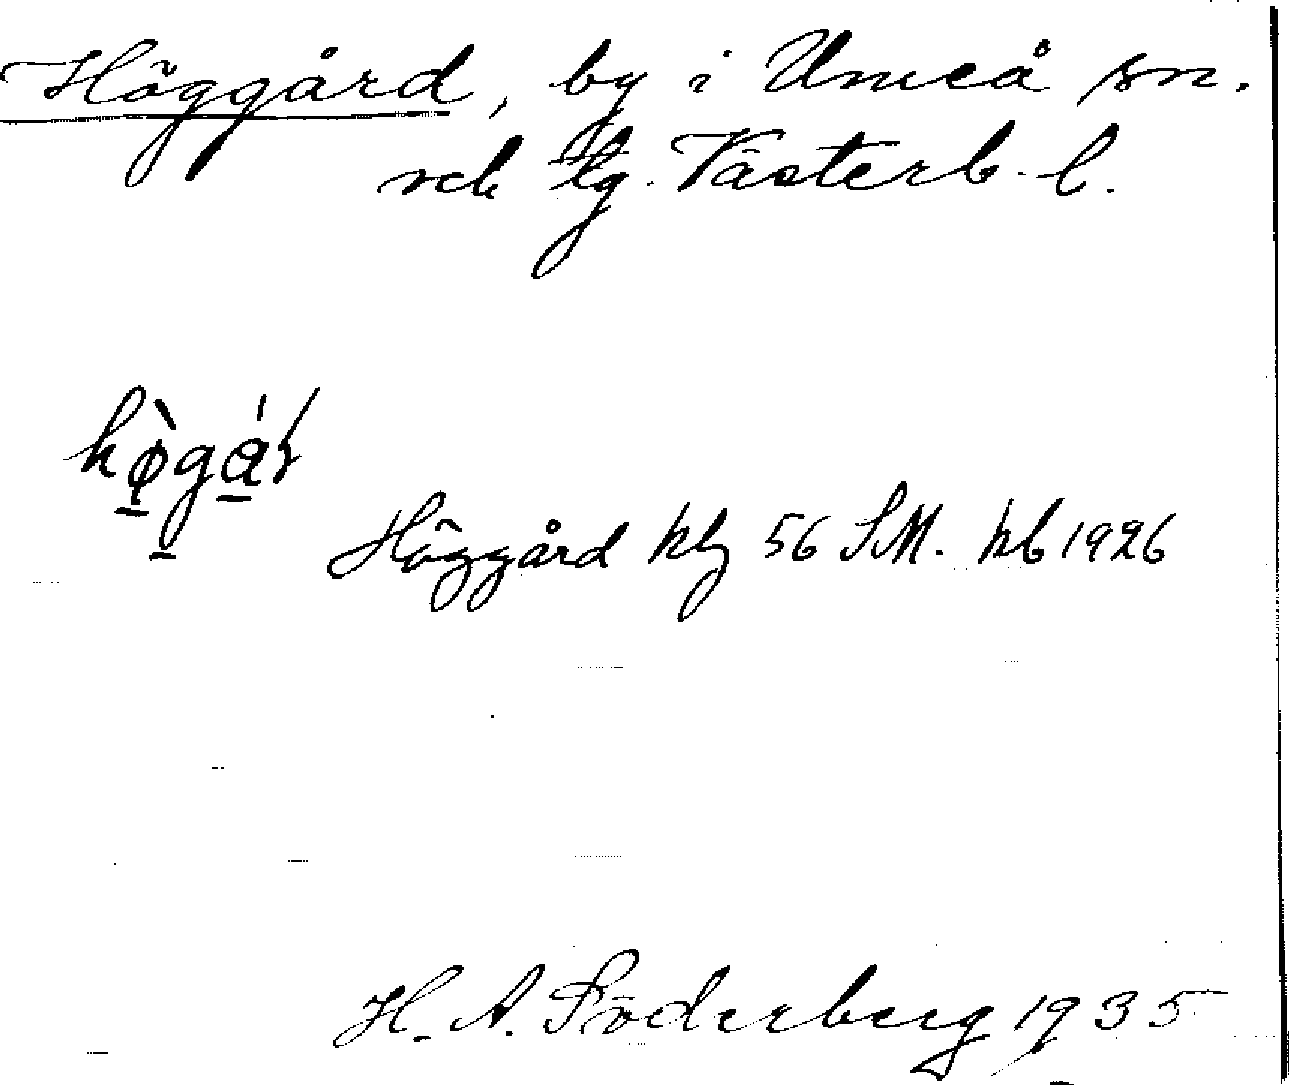 Höggård, by i Umeå sn.
och tg. Västerb. l.
Höggård kbg 56 SM. hb 1926
H. A. Söderberg 1935